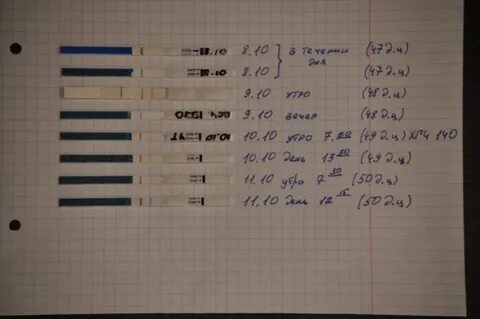 8.10 } в течении (47 д.ц)
8.10 дня (47 д.ц)
9.10 утро (48 д.ц)
9.10 вечер (48 д.ц)
10.10 утро 7.00 (49 д.ц) ХГЧ 140
10.10 день 13 20 (49 д.ц)
11.10 утро 7 30 (50 д.ц)
11.10 день 12 15 (50 д.ц)